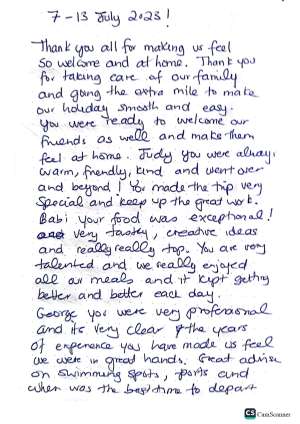 7-13 July 2023!
Thank you all for making us feel
so welcome and at home. Thank you
for taking care of our family
and going the extra mile to make
our holiday smooth and easy.
You were ready to welcome our
friends as well and make them
feel at home. Judy you were always
warm, friendly, kind and went over
and beyond! You made the trip very
special and keep up the great work.
Babi your food was exceptional!
very tastey, creative ideas
and really really top. You are very
talented and we really enjoyed
all our meals and it kept getting
better and better each day.
George you were very professional
and its very clear of the years
of experience you have made us feel
we were in great hands. Great advise
on swimming spots, ports and
when was the best time to depart
CS CamScanner